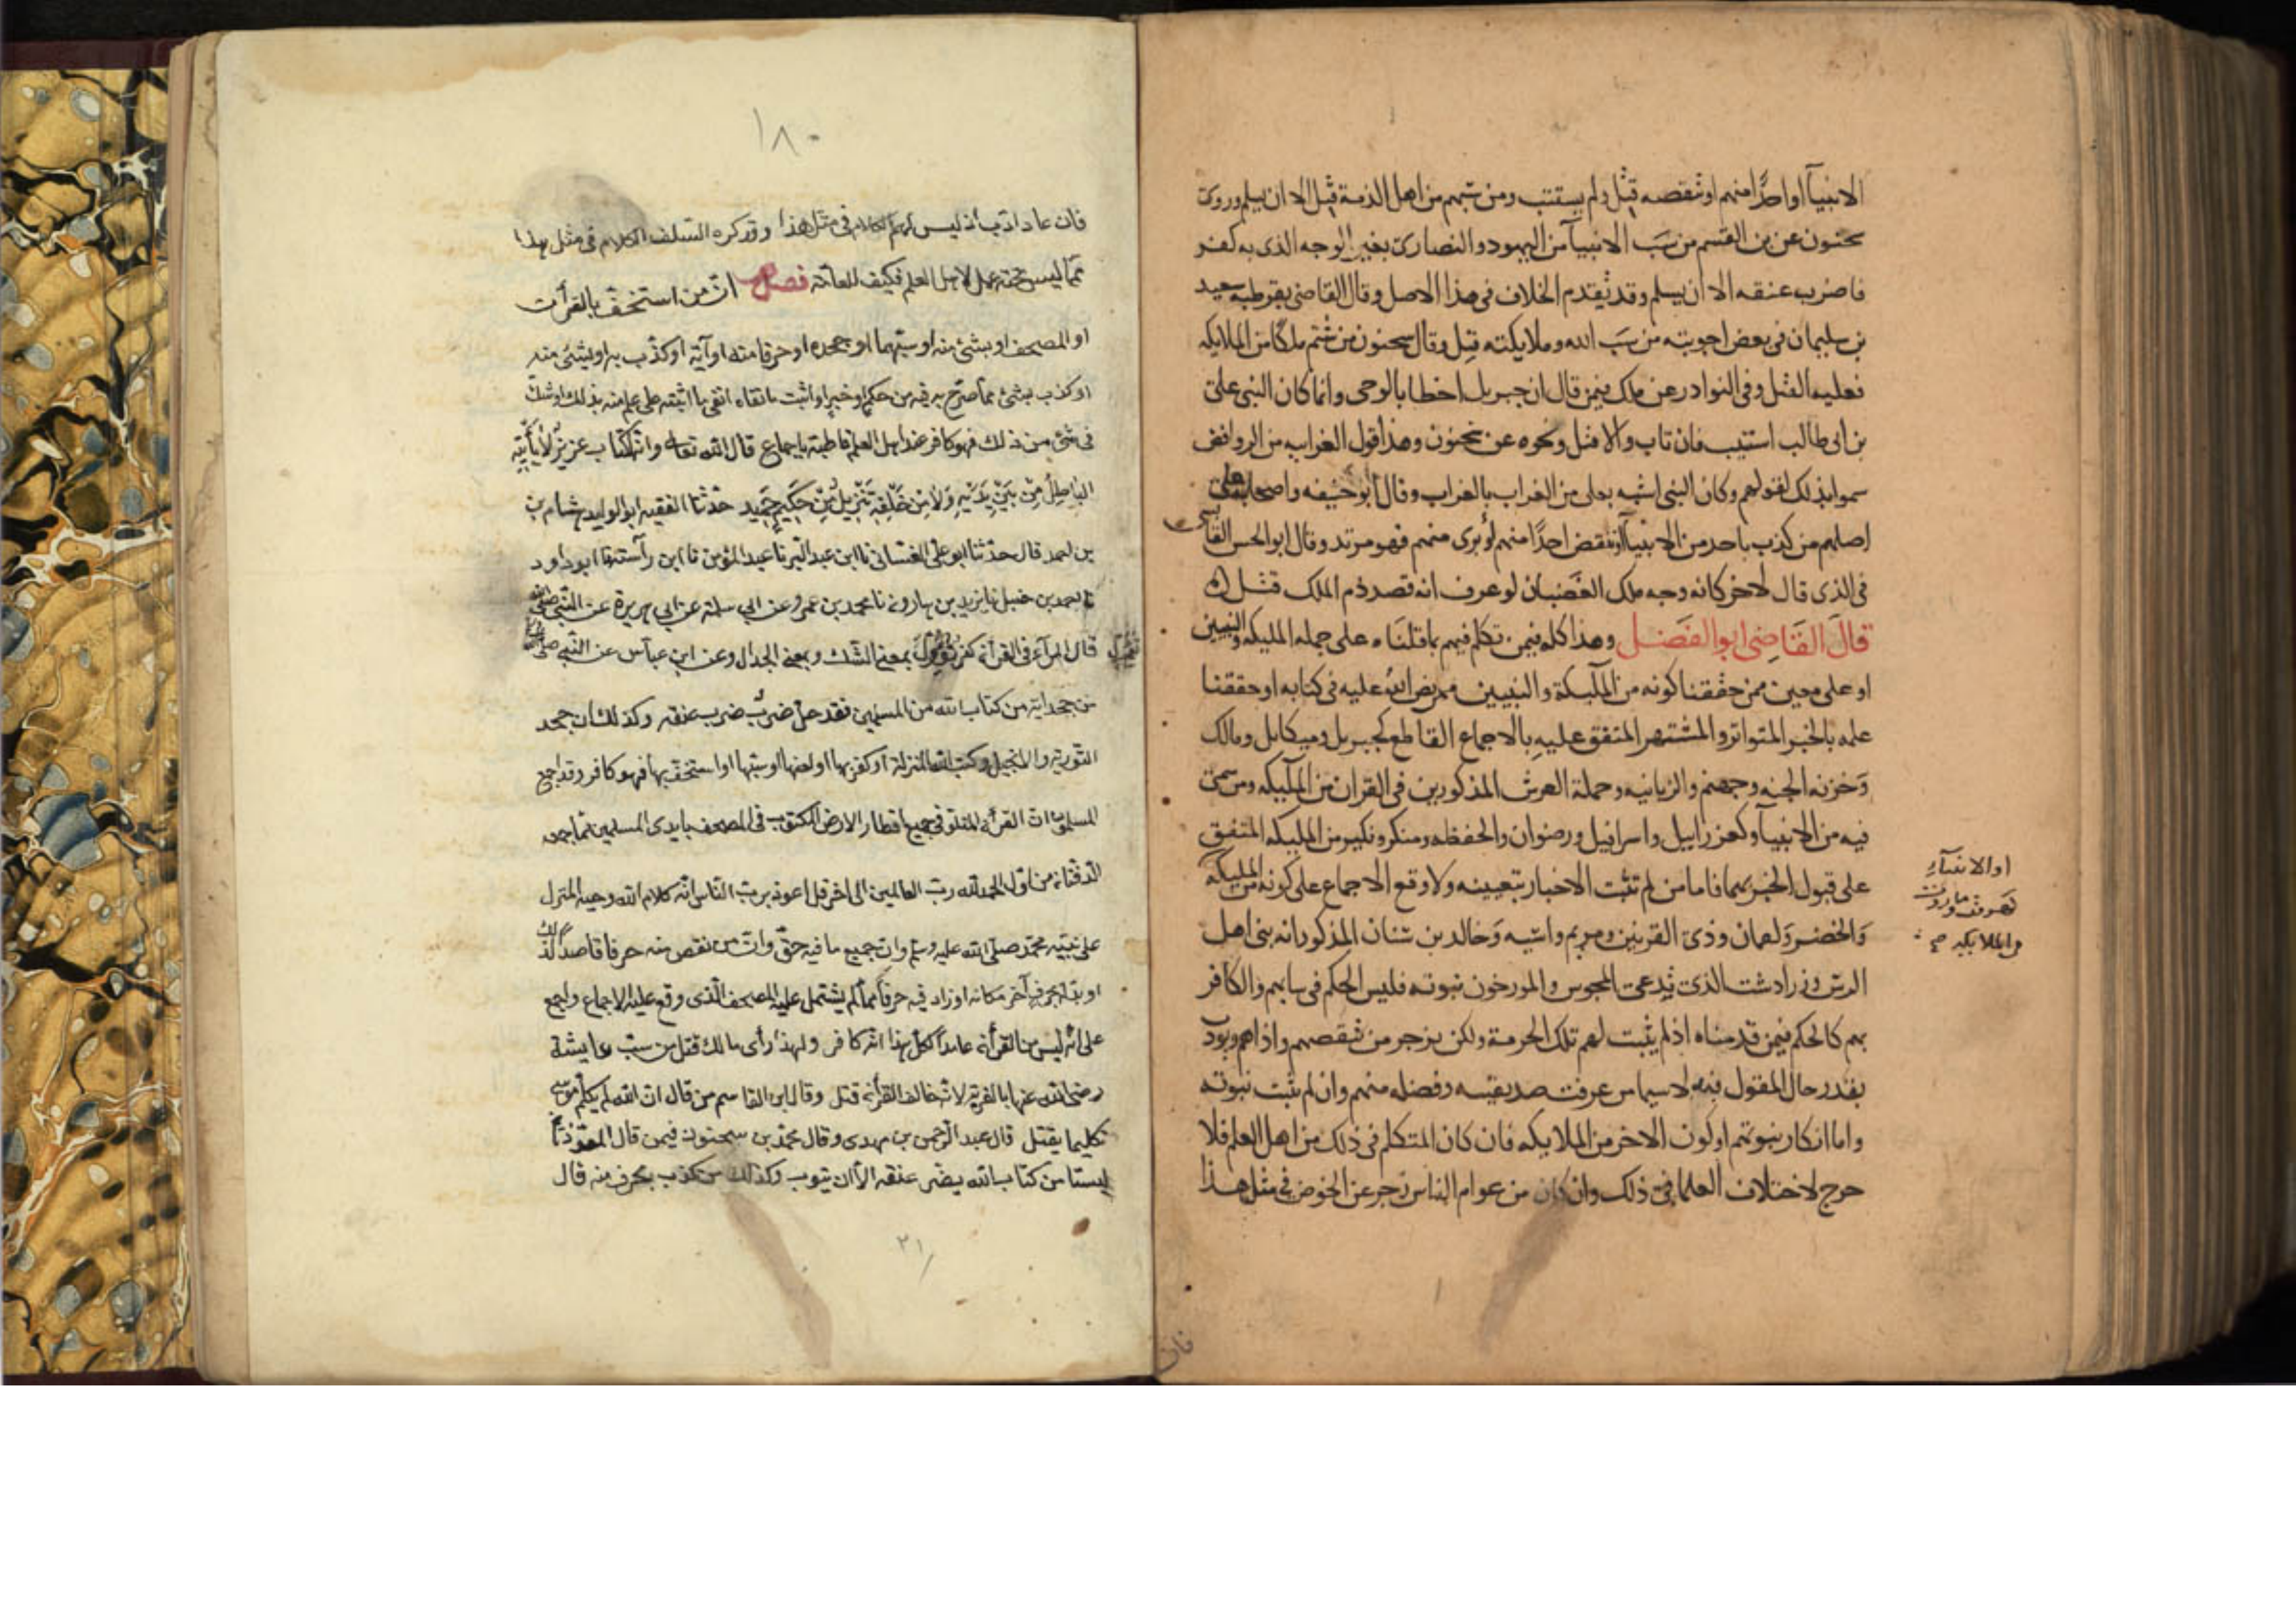 الانبيآ او احدًا منهم او تنقصه قتل ولم يستتب ومن سبهم من اهل الذمة قتل الا ان يسلم وروى
سحنون عن بن القسم من سَب الانبيآ من اليهود والنصارى بغير الوجه الذى به كفر
فاضرب عنقه الا ان يسلم وقد تقدم الخلاف فى هذا الاصل وقال القاضى بقرطبه سعيد
بن سليمان فى بعض اجوبته من سَب الله وملايكته قتل وقال سحنون من شتم ملكًا من الملايكه
فعليه القتل وفى النوادر عن ملك فيمن قال ان جبريل اخطا بالوحى وانما كان النبى على
بن ابى طالب استتيب فان تاب والا قتل ونحوه عن سحنون وهذا قول الغرابيه من الروافض
سموا بذلك لقولهم وكان النبى اشبه بعلى من الغراب بالغراب وقال ابو حنيفه واصحابه على
اصلهم من كذب باحد من الانبيآ او تنقض احدًا منهم او برى منهم فهو مرتد وقال ابو الحسن القابسى
فى الذى قال لاخر كانه وجه ملك الغَضبان لو عرف انه قصد ذم الملك قتل
قالَ القَاضِى ابو الفَضل وهذا كله فيمن تكلم فيهم بما قلنَاه على جمله المليكه والنبيين
او على معين ممن حققنا كونه من المليكة والنبيين ممن نص الله عليه فى كتابه او حققنا
علمه بالخبر المتواتر والمشتهر المتفق عليهِ بالاجماع القاطع كجبريل وميكايل ومالك
وَخزنه الجنه وجهنم والزبانيه وحملة العرش المذكورين فى القران من المليكه ومن سمى
فيه من الانبيآ وكعزراييل واسرافيل ورضوان والحفظه ومنكر ونكير من المليكه المتفق
على قبول الخبر بهما فاما من لم تثبت الاخبار بتعيينه ولا وقع الاجماع على كونه من المليكة
او الانبيآء كهروت وماروت فى الملايكه صح
وَالخضر وَلقمان وذى القرنين ومريم واسيه وَخالد بن سنان المذكور انه نبى اهل
الرس وزرادشت الذى تدعى المجوس والمورخون نبوته فليس الحكم فى سابهم والكافر
بهم كالحكم فيمن قدمناه اذ لم يثبت لهم تلك الحرمة ولكن يزجر من تنقصهم واذاهم ويودب
بقدر حال المقول فيه لا سيما من عرفت صديقيته وفضله منهم وان لم تثبت نبوته
واما انكار نبوتهم او كون الاخر من الملايكه فان كان المتكلم فى ذلك من اهل العلم فلا
حرج لاختلاف العلما فى ذلك وان كان من عوام الناس زجر عن الخوض فى مثل هذا
فان
١٨٠
فان عاد ادّب اذ ليس لهم الكلام فى مثل هذا وقد كره السلف الكلام فى مثل هذا
ممّا ليس تحته عمل لاهل العلم فكيف للعامّة فصل انّ من استخفّ بالقرآن
او المصحف او بشئ منه او سبّهما او جحده او حرفا منه او آية او كذّب به او بشئ منه
او كذب بشئ ممّا صرّح به فيه من حكم او خبر او اثبت ما نفاه او نفى ما اثبته على علم منه بذلك او شكّ
فى شئ من ذلك فهو كافر عند اهل العلم قاطبة باجماع قال الله تعالى وانّه لكتاب عزيزٌ لا يأتيه
الباطلُ مِنْ بَيْنِ يَدَيْهِ وَلاَ مِن خَلْفِهِ تَنْزِيلٌ مِنْ حَكِيمٍ حَمِيد حدّثنا الفقيه ابو الوليد هشام بن
بن احمد قال حدّثنا ابو علىّ الغسّانى نا ابن عبد البّر نا عبد المؤمن نا ابن راسته نا ابو داود
نا احمد بن حنبل نا يزيد بن هارون نا محمد بن عمرو عن ابى سلمة عن ابى هريرة عن النبّى صلى
قال المرآء فى القرآن كفر تؤوّل بمعنى الشّك وبمعنى الجدال وعن ابن عبّاس عن النّبى صلى
من جحد آية من كتاب الله من المسلمين فقد حلّ ضرب عنقه وكذلك ان جحد
التّورية والانجيل وكتب الله المنزلة او كفر بها او لعنها او سبّها او استخفّ بها فهو كافر وقد اجمع
المسلمون انّ القرآن المتلوّ فى جميع اقطار الارض المكتوب فى المصحف بايدى المسلمين ممّا جمعه
الدّفتان من اوّل الحمد لله ربّ العالمين الى اخر قل اعوذ بربّ النّاس انّه كلام الله ووحيه المنزل
على نبيّه محمّد صلّى الله عليه وسلم وانّ جميع ما فيه حقّ وانّ من نقص منه حرفا قاصدًا لذلك
او بدّله بحرف آخر مكانه او زاد فيه حرفًا ممّا لم يشتمل عليه المصحف الّذى وقع عليه الاجماع واجمع
على انّه ليس من القرآن عامدًا لكلّ هذا انّه كافر ولهذا رأى مالك قتل من سبّ عايشة
رضى الله عنها بالفرية لانّه خالف القرآن قتل وقال ابن القاسم من قال انّ الله لم يكلّم موسى
تكليما يقتل قال عبد الرّحمن بن مهدى وقال محمّد بن سحنون فيمن قال المعوّذتان
ليستا من كتاب الله يضرب عنقه الاّ ان يتوب وكذلك من كذّب بحرف منه قال
٢١